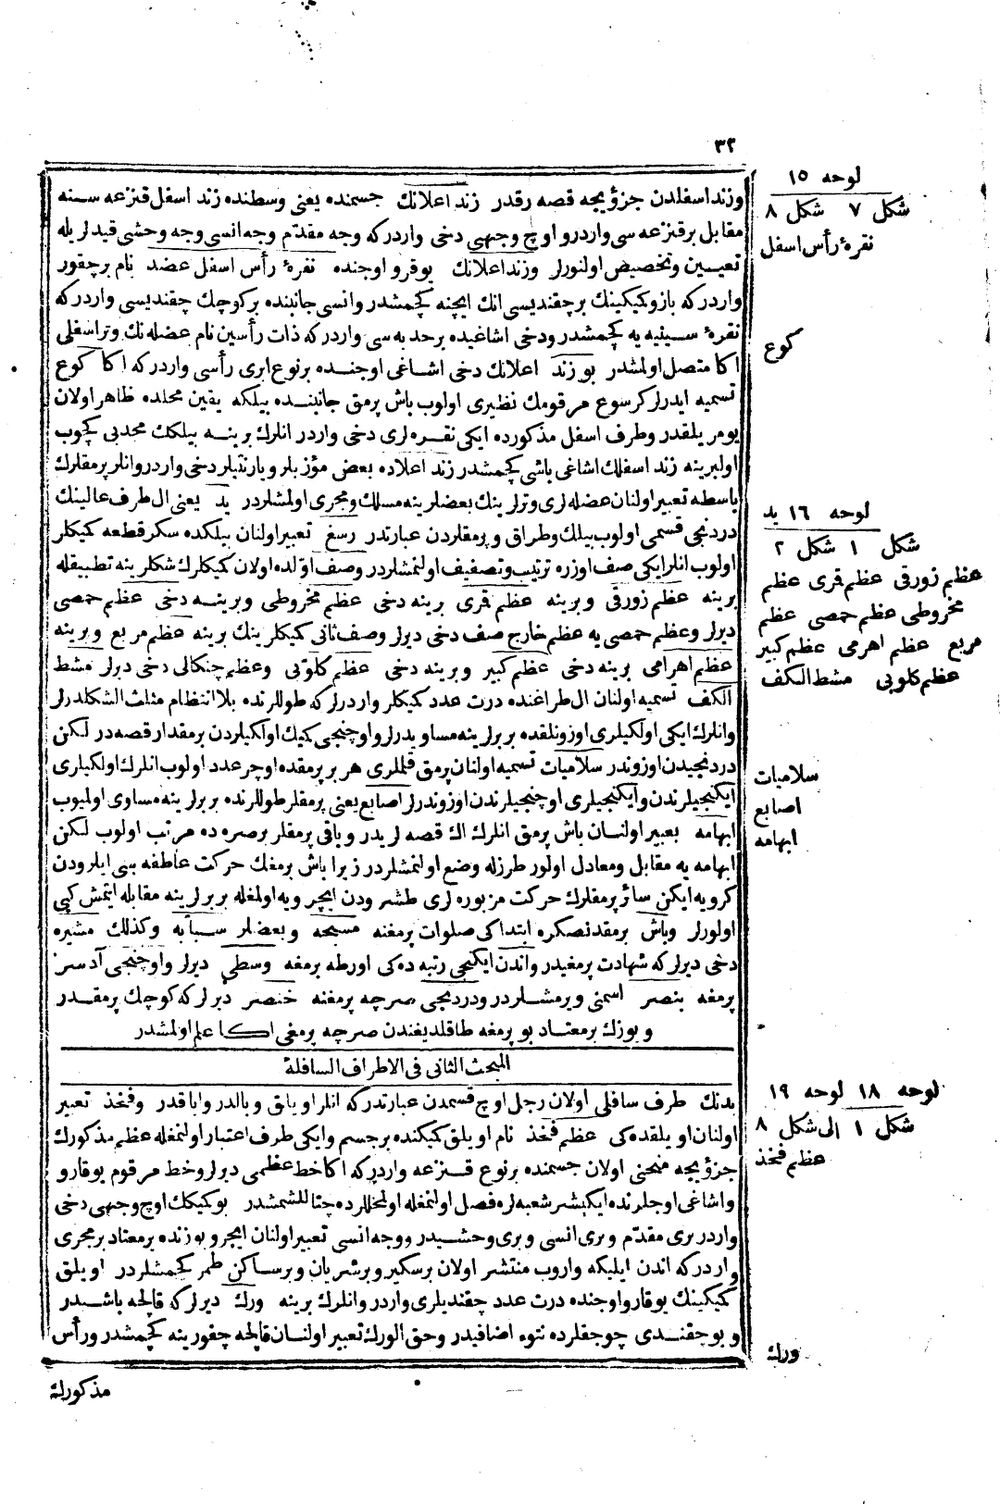 ٣٢
وزند اسفلدن جزؤیجه قصه رقدر زند اعلانك جسمنده یعنی وسطنده زند اسفل قنزعه سنه
مقابل بر قنزعه سی واردر و اوچ وجهی دخی واردرکه وجه مقدّم وجه انسی وجه وحشی قیدلریله
تعیین و تخصیص اولنورلر وزند اعلانك یوقرو اوجنده نقرهٔ رأس اسفل عضد نام بر چقور
واردرکه بازو کمیکینك بر چقندیسی انك ایچنه کچمشدر وانسی جانبنده بر کوچك چقندیسی واردرکه
نقرهٔ سینیه یه کچمشدر ودخی اشاغیده بر حدبه سی واردرکه ذات رأسین نام عضله نك وتر اسفلی
اکا متصل اولمشدر بو زند اعلانك دخی اشاغی اوجنده بر نوع ابری رأسی واردرکه اکا کوع
تسمیه ایدرلر کرسوع مرقومك نظیری اولوب باش پرمق جانبنده بیلکه یقین محلده ظاهر اولان
یومریلقدر وطرف اسفل مذکورده ایکی نقره لری دخی واردر انلرك برینه بیلکك محدبی کچوب
اولبرینه زند اسفلك اشاغی باشی کچمشدر زند اعلاده بعض مؤزیلر ویارنتیلر دخی واردر وانلر پرمقلرك
باسطه تعبیر اولنان عضله لری وترلرینك بعضلرینه مسلك ومجری اولمشلردر ید یعنی ال طرف عالینك
دردنجی قسمی اولوب بیلك وطراق و پرمقلردن عبارتدر رسغ تعبیر اولنان بیلکده سکز قطعه کمیکلر
اولوب انلر ایکی صف اوزره ترتیب وتصفیف اولنمشلردر وصف اوّلده اولان کمیکلرك شکلرینه تطبیقله
برینه عظم زورقی وبرینه عظم قری برینه دخی عظم مخروطی وبرینه دخی عظم حمصی
دیرلر وعظم حمصی یه عظم خارج صف دخی دیرلر وصف ثانی کمیکلرینك برینه عظم مربع وبرینه
عظم اهرامی برینه دخی عظم کبیر وبرینه دخی عظم کلوبی وعظم چنکالی دخی دیرلر مشط
الکف تسمیه اولنان ال طراغنده درت عدد کمیکلر واردرلرکه طوللرنده بلا انتظام مثلث الشکلدرلر
وانلرك ایکی اولکیلری اوزونلقده بربرلرینه مساویدرلر واوچنجی کمیك اولکیلردن بر مقدار قصه در لکن
دردنجیدن اوزوندر سلامیات تسمیه اولنان پرمق قلملری هر بر پرمقده اوچر عدد اولوب انلرك اولکیلری
ایکنجیلرندن وایکنجیلری اوچنجیلرندن اوزوندرلر اصابع یعنی پرمقلر طوللرنده بربرلرینه مساوی اولمیوب
ابهامه تعبیر اولنان باش پرمق انلرك اك قصه لریدر وباقی پرمقلر بر صره ده مرتب اولوب لکن
ابهامه یه مقابل ومعادل اولور طرزله وضع اولنمشلردر زیرا باش پرمغك حرکت عاطفه سی ایلرودن
کرویه ایکن سائر پرمقلرك حرکت مزبوره لری طشرودن ایچرویه اولمغله بربرلرینه مقابله ایتمش کبی
اولورلر وباش پرمقدنصکره ابتداکی صلوات پرمغنه مسبحه وبعضلر سبابه وکذلك مشیره
دخی دیرلرکه شهادت پرمغیدر واندن ایکنجی رتبه ده کی اورطه پرمغه وسطی دیرلر واوچنجی آدسز
پرمغه بنصر اسمنی ویرمشلردر ودردنجی صرچه پرمغنه خنصر دیرلرکه کوچك پرمقدر
ویوزك بر معتاد بو پرمغه طاقلدیغندن صرچه پرمغی اکا علم اولمشدر
المبحث الثانی فی الاطراف السافلة
بدنك طرف سافلی اولان رجل اوچ قسمدن عبارتدرکه انلر اویلق وبالدر وایاقدر وفخذ تعبیر
اولنان اویلقده کی عظم فخذ نام اویلق کمیکنده بر جسم وایکی طرف اعتبار اولنمغله عظم مذکورك
جزؤیجه منحنی اولان جسمنده بر نوع قنزعه واردرکه اکا خط عظمی دیرلر وخط مرقوم یوقارو
واشاغی اوجلرنده ایکیشر شعبه لره فصل اولنمغله اولمحللرده چتاللشمشدر بو کمیکك اوچ وجهی دخی
واردر بری مقدّم وبری انسی وبری وحشیدر ووجه انسی تعبیر اولنان ایچرو یوزنده بر معتاد بر مجری
واردرکه اندن ایلیکه واروب منتشر اولان بر سکیر وبر شریان وبر ساکن طمر کچمشلردر اویلق
کمیکینك یوقارو اوجنده درت عدد چقندیلری واردر وانلرك برینه ورك دیرلرکه قالجه باشیدر
وبو چقندی چوجقلرده نتوء اضافیدر وحق الورك تعبیر اولنان قالجه چقورینه کچمشدر ورأس
مذکورك
لوحه ١٥
شکل ٧ شکل ٨
نقرهٔ رأس اسفل
کوع
لوحه ١٦ ید
شکل ١ شکل ٢
عظم زورقی عظم قری عظم
مخروطی عظم حمصی عظم
مربع عظم اهرمی عظم کبیر
عظم کلوبی مشط الکف
سلامیات
اصابع
ابهامه
لوحه ١٨ لوحه ١٩
شکل ١ الی شکل ٨
عظم فخذ
ورك